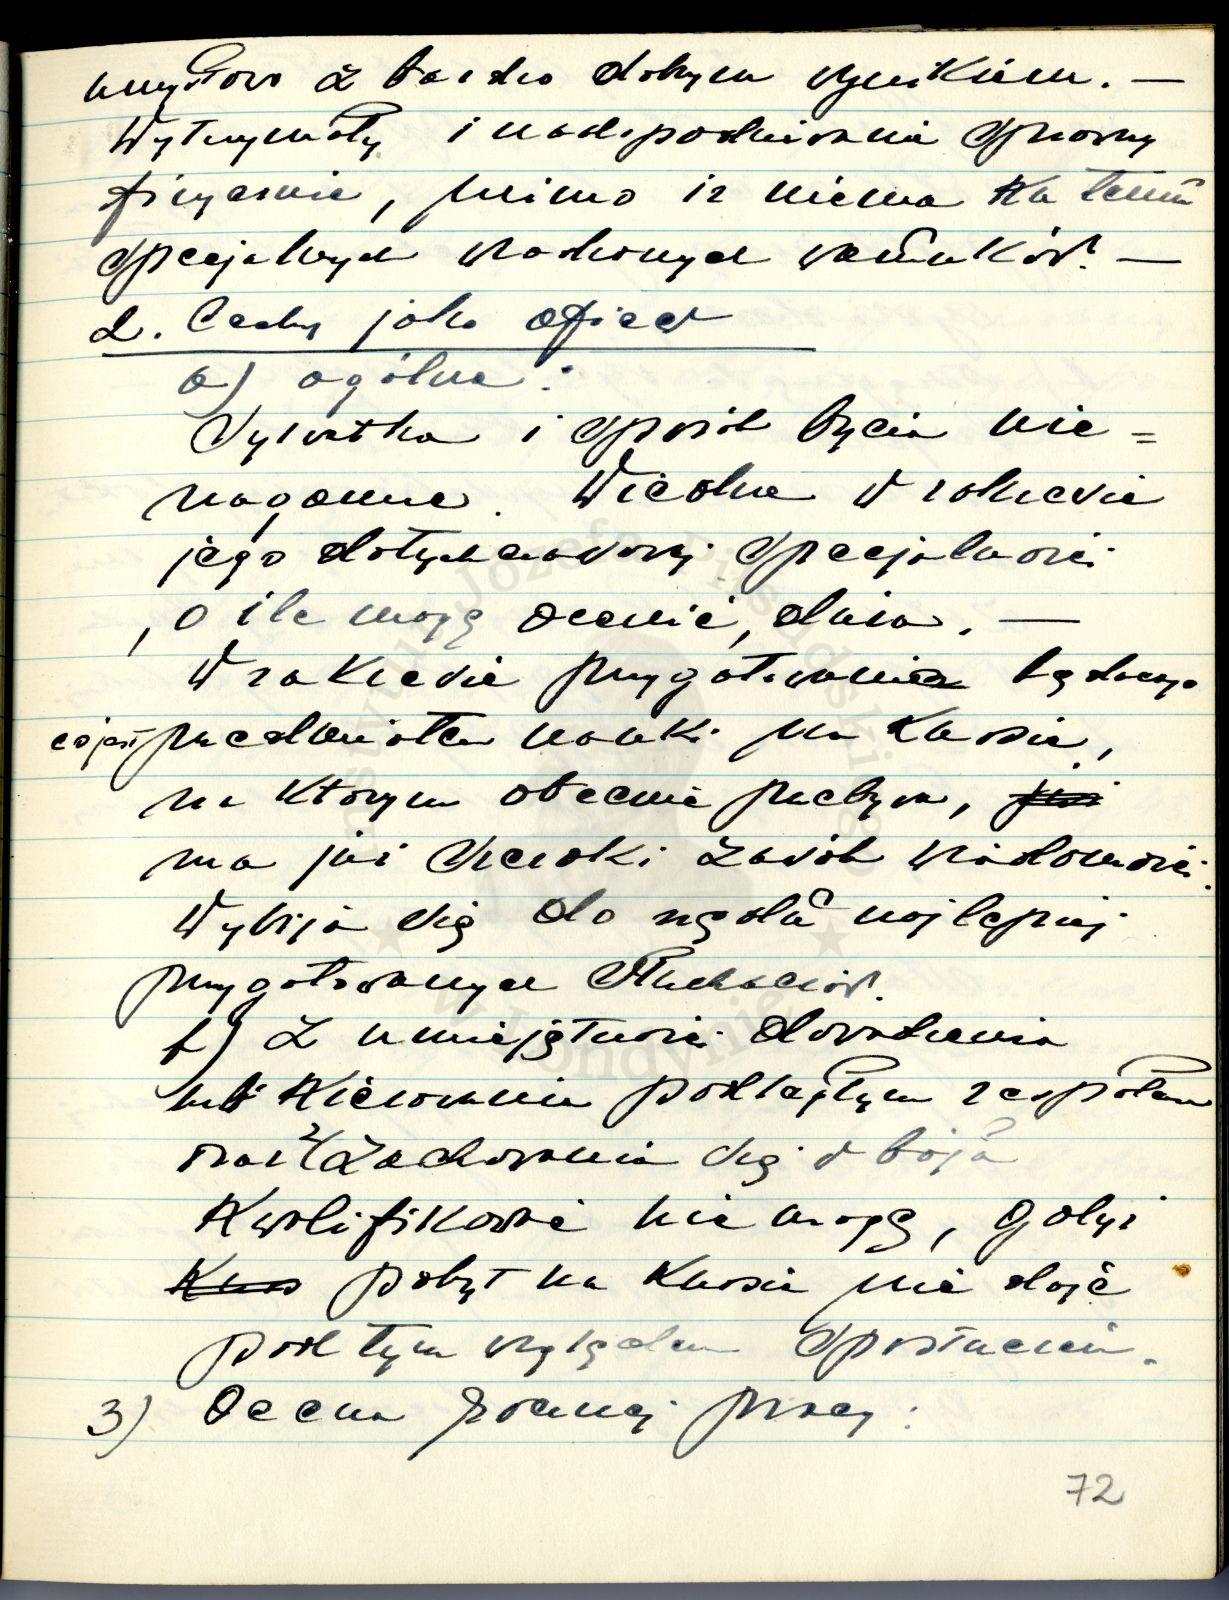 umysłowo z bardzo dobrym wynikiem. —
Wytrzymały i nadspodziewanie sprawny
fizycznie, mimo iż niema ku temu
specjalnych wrodzonych warunków. —
2. Cechy jako oficer
a) ogólne :
Sylwetka i sposób bycia nie=
naganne. Wiedza w zakresie
jego dotychczasowej specjalności
, o ile mogę ocenić, duża. —
W zakresie przygotowania będącego
co jest przedmiotem nauki na Kursie,
na którym obecnie przebywa, już
ma już szeroki zasób wiadomości.
Wybija się do rzędu najlepiej
przygotowanych słuchaczów.
b) Z umiejętności dowodzenia
lub Kierowania podległym zespołem
oraz 2/ zachowania się w boju
Kwalifikować nie mogę, gdyż
Kurs pobyt na Kursie nie daje
pod tym względem spostrzeżeń.
3) Ocena rocznej pracy :
72
Józefa Piłsudskiego
w Londynie